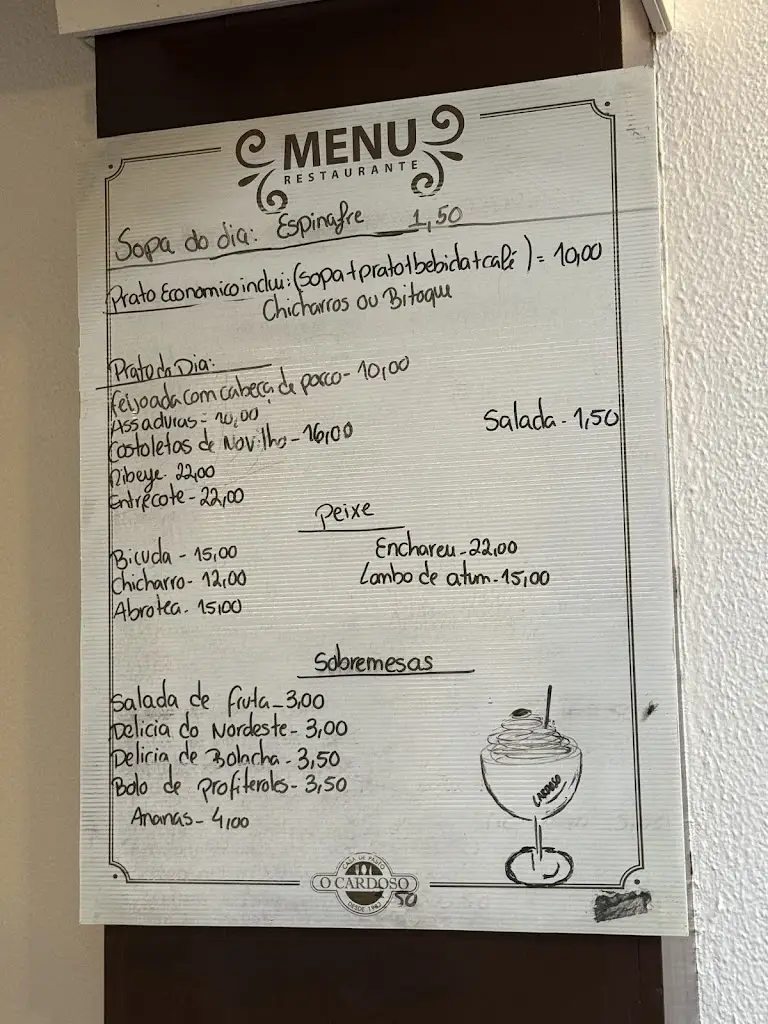 MENU
RESTAURANTE
Sopa do dia: Espinafre 1,50
Prato Economico inclui: (sopa+prato+bebida+café) = 10,00
Chicharros ou Bitoque
Prato do Dia:
feijoada com cabeça de porco - 10,00
Assaduras - 10,00
Costoletas de Novilho - 16,00
Salada - 1,50
Ribeye - 22,00
Entrecote - 22,00
Peixe
Bicuda - 15,00
Enchareu - 22,00
Chicharro - 12,00
Lombo de atum - 15,00
Abrotea - 15,00
Sobremesas
Salada de fruta - 3,00
Delicia do Nordeste - 3,00
Delicia de Bolacha - 3,50
Bolo de profiteroles - 3,50
Ananas - 4,00
CARDOSO
CASA DE PASTO
O CARDOSO
DESDE
50